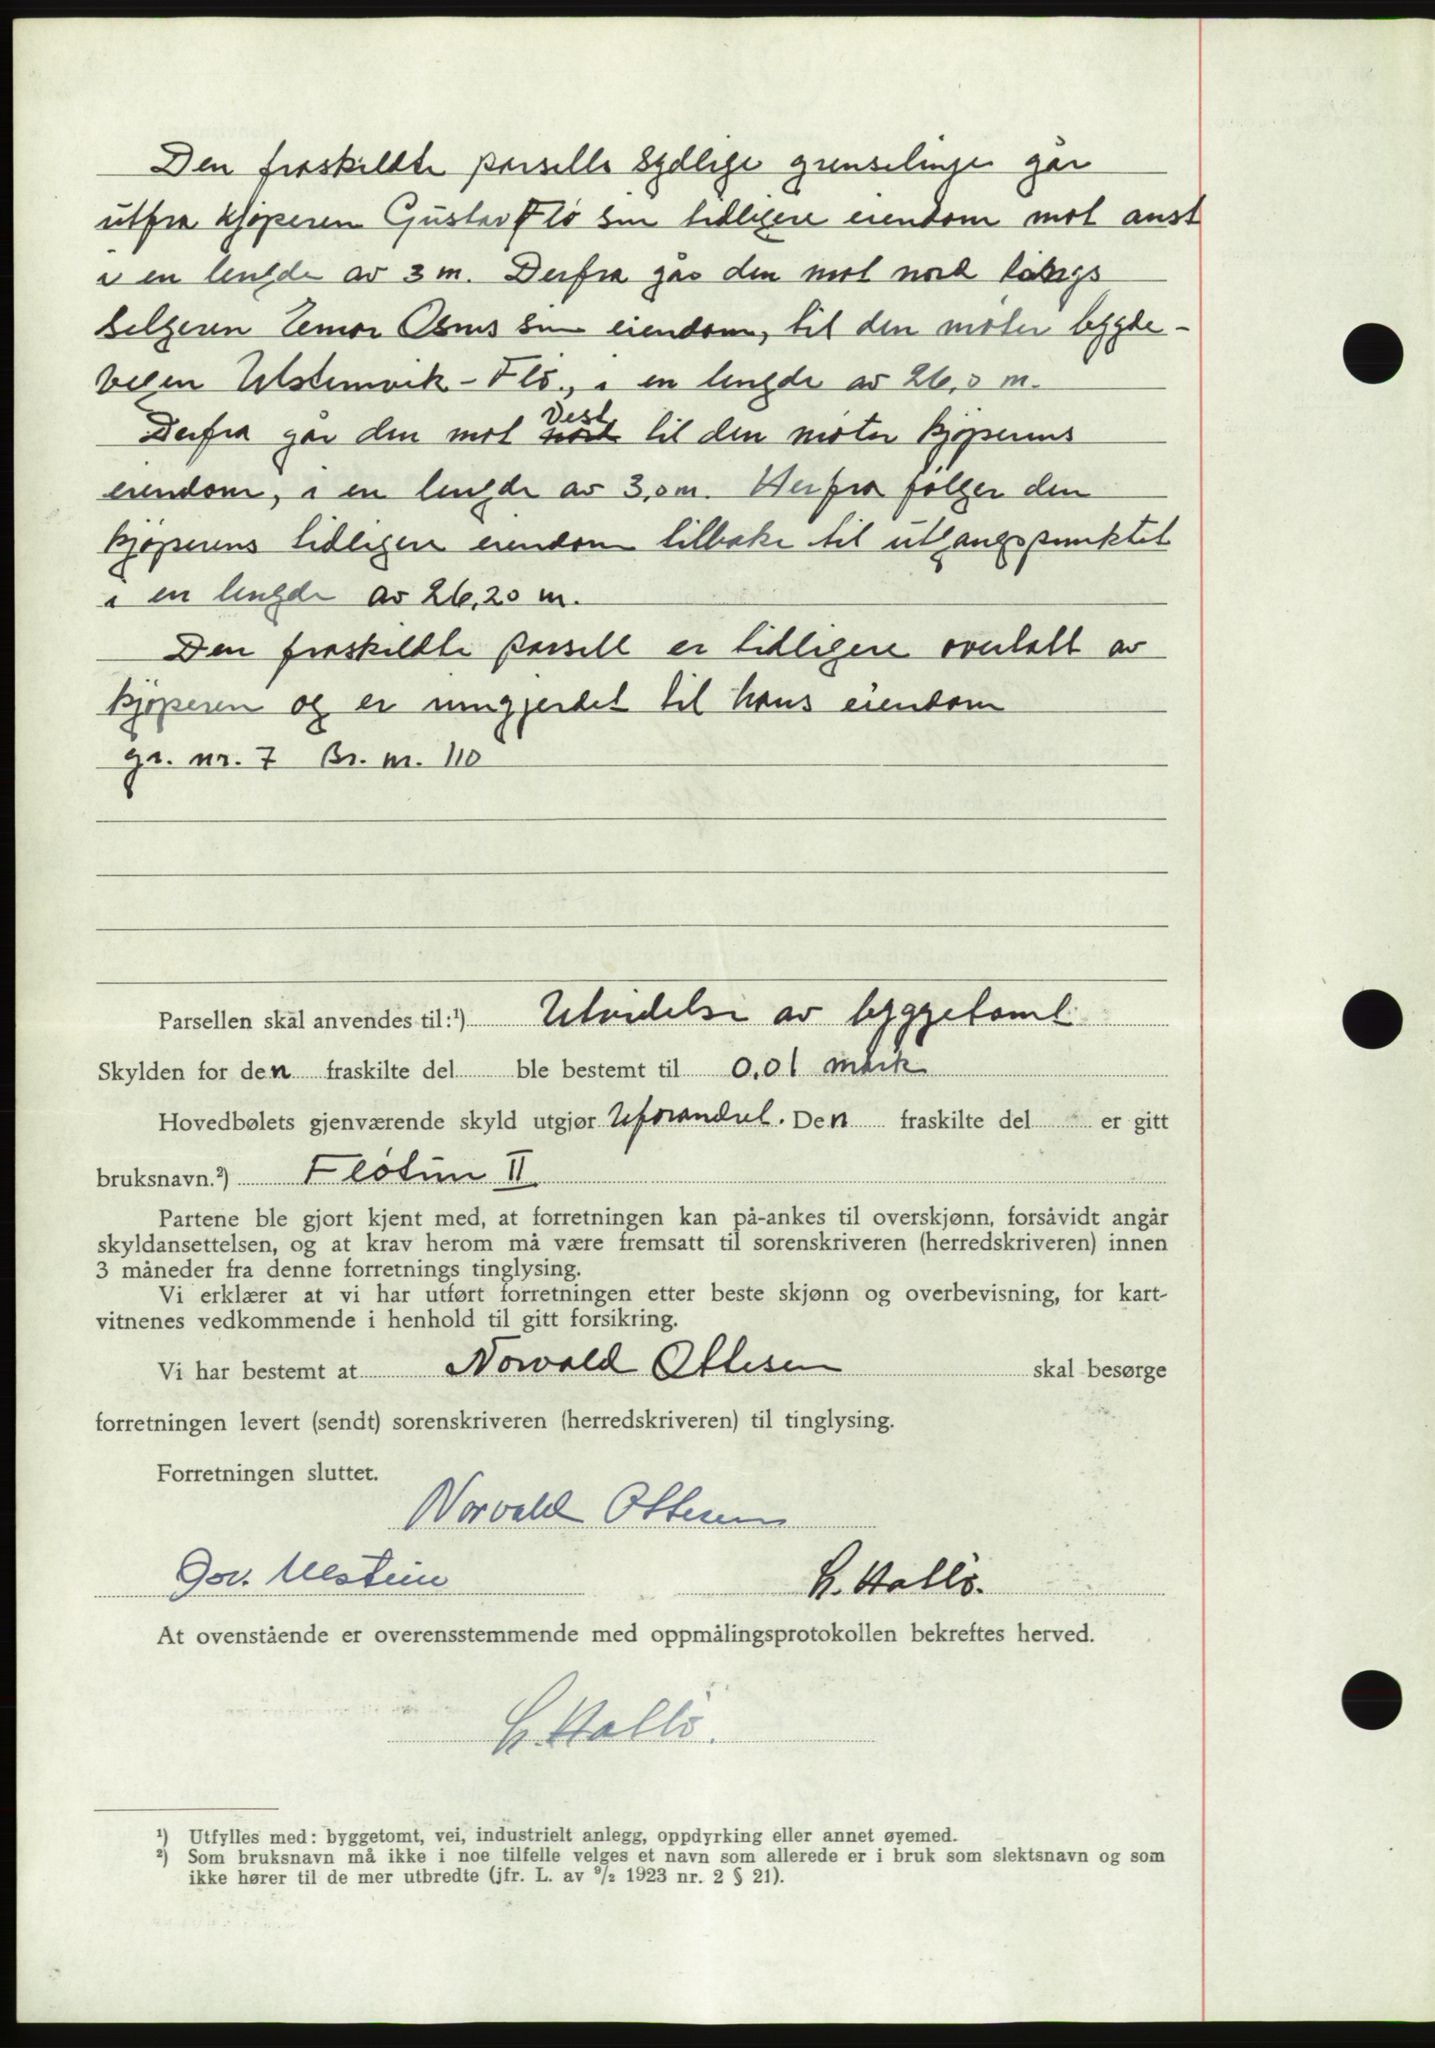 Den fraskildte parsells sydlige grenselinje går
utfra kjøperen Gustav Flø sin tidligere eiendom mot aust
i en lengde av 3 m. Derfra går den mot nord langs
selgeren Osnes sin eiendom, til den møter bygde-
vegen Ulsteinvik - Flø, i en lengde av 26,0 m.
Derfra går den mot vest til den møter kjøperens
eiendom, i en lengde av 3,0 m. Herfra følger den
kjøperens tidligere eiendom tilbake til utgangspunktet
i en lengde av 26,20 m.
Den fraskildte parsell er tidligere overtatt av
kjøperen og er inngjerdet til hans eiendom
gr. nr. 7 Br. nr. 110
Parsellen skal anvendes til:¹) Utvidelse av byggetomt
Skylden for den fraskilte del ble bestemt til 0,01 mark
Hovedbølets gjenværende skyld utgjør Uforandret. Den fraskilte del er gitt
bruksnavn.²) Fløtun II
Partene ble gjort kjent med, at forretningen kan på-ankes til overskjønn, forsåvidt angår
skyldansettelsen, og at krav herom må være fremsatt til sorenskriveren (herredskriveren) innen
3 måneder fra denne forretnings tinglysing.
Vi erklærer at vi har utført forretningen etter beste skjønn og overbevisning, for kart-
vitnenes vedkommende i henhold til gitt forsikring.
Vi har bestemt at Norvald Ottesen skal besørge
forretningen levert (sendt) sorenskriveren (herredskriveren) til tinglysing.
Forretningen sluttet.
Norvald Ottesen
Gov. Ulstein H. Hallø.
At ovenstående er overensstemmende med oppmålingsprotokollen bekreftes herved.
H. Hallø.
¹) Utfylles med: byggetomt, vei, industrielt anlegg, oppdyrking eller annet øyemed.
²) Som bruksnavn må ikke i noe tilfelle velges et navn som allerede er i bruk som slektsnavn og som
ikke hører til de mer utbredte (jfr. L. av ⁹/₂ 1923 nr. 2 § 21).